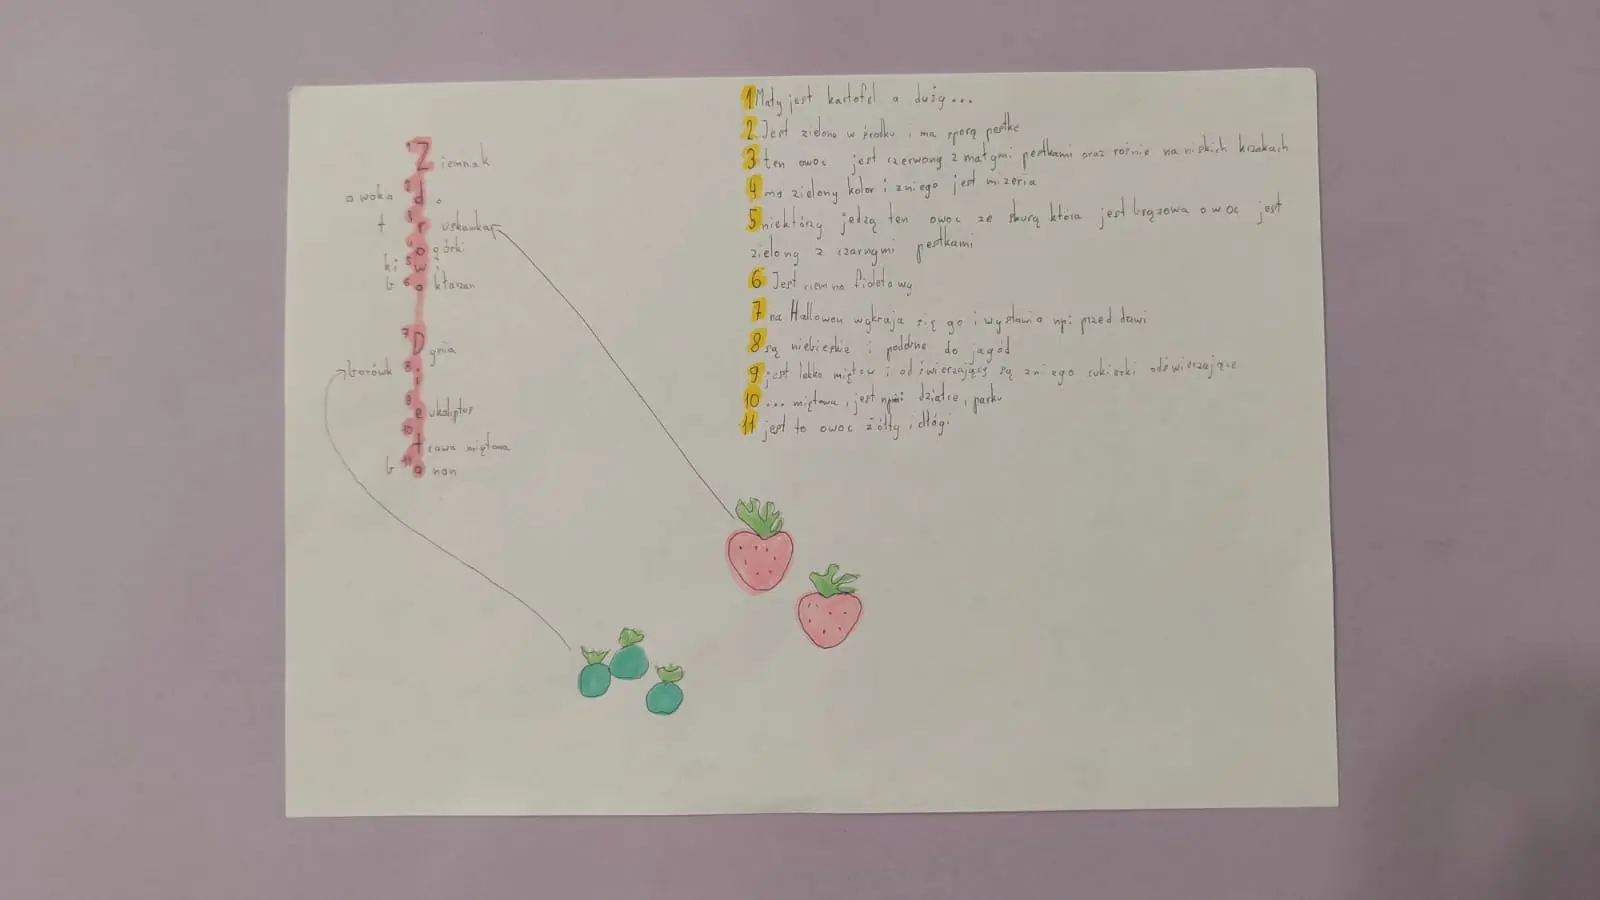 1 Ziemniak
awoka 2 d o
t 3 r uskawka
4 o górki
ki 5 w i
b 6 a kłażan
7 D ynia
borówk 8 i
9 e ukaliptus
10 t rawa miętowa
b 11 a nan
1 Mały jest kartofel a duży...
2 Jest zielone w środku i ma sporą pestkę
3 ten owoc jest czerwony z małymi pestkami oraz rośnie na niskich krzakach
4 ma zielony kolor i zniego jest mizeria
5 niektórzy jedzą ten owoc ze skurą która jest brązowa owoc jest
zielony z czarnymi pestkami
6 Jest ciemno fioletowy
7 na Hallowen wykraja się go i wystawia np: przed drzwi
8 są niebieskie i podobne do jagód
9 jest lekko miętow i odświerzający są zniego cukierki odświerzające
10 ... miętowa, jest np: działce, parku
11 jest to owoc żółty i dłógi